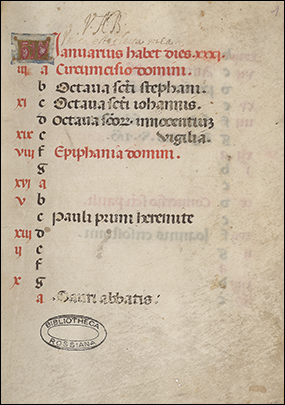 Ianuarius habet dies. xxxi.
iii a Circumcisio domini.
b Octaua scti stephani.
xi c Octaua scti iohannis.
d Octaua scor. innocentium
xix e Vigilia.
viii f Epiphania domini.
g
xvi a
v b
c Pauli primi heremite
xiii d
ii e
f
x g
a Mauri abbatis.
BIBLIOTHECA
ROSSIANA